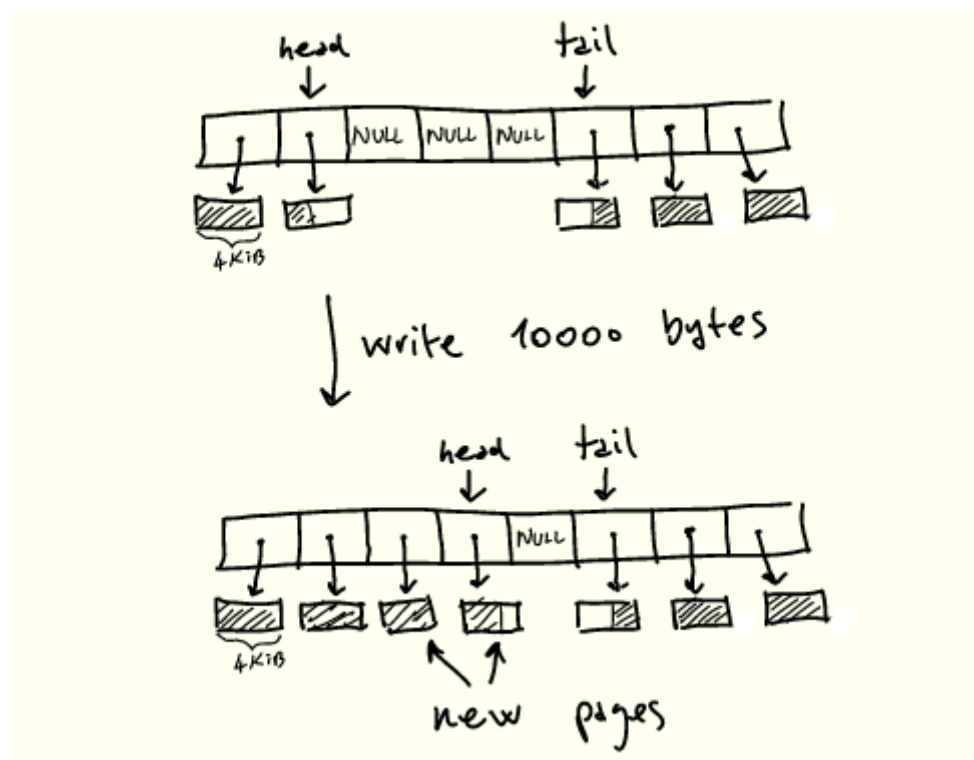 head tail
NULL NULL NULL
4KiB
write 10000 bytes
head tail
NULL
4KiB
new pages